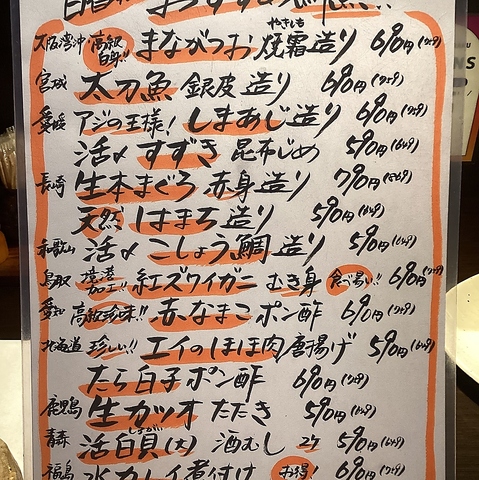 大阪湾沖 高級白身!! まながつお 焼霜造り 690円(759)
やきしも
宮城 太刀魚 銀皮造り 690円(759)
愛媛 アジの王様! しまあじ造り 690円(759)
活〆すずき 昆布じめ 590円(649)
長崎 生本まぐろ 赤身造り 790円(869)
天然 はまち造り 590円(649)
和歌山 活〆こしょう鯛造り 590円(649)
鳥取 境港加工!! 紅ズワイガニ むき身 食べ易い!! 690円(759)
愛知 高級珍味!! 赤なまこ ポン酢 690円(759)
北海道 珍しい!! エイのほほ肉 唐揚げ 590円(649)
たら白子ポン酢 690円(759)
鹿児島 生カツオ たたき 590円(649)
青森 活白貝(大) 酒むし 2ケ 590円(649)
福島 水カレイ煮付け お得! 690円(759)